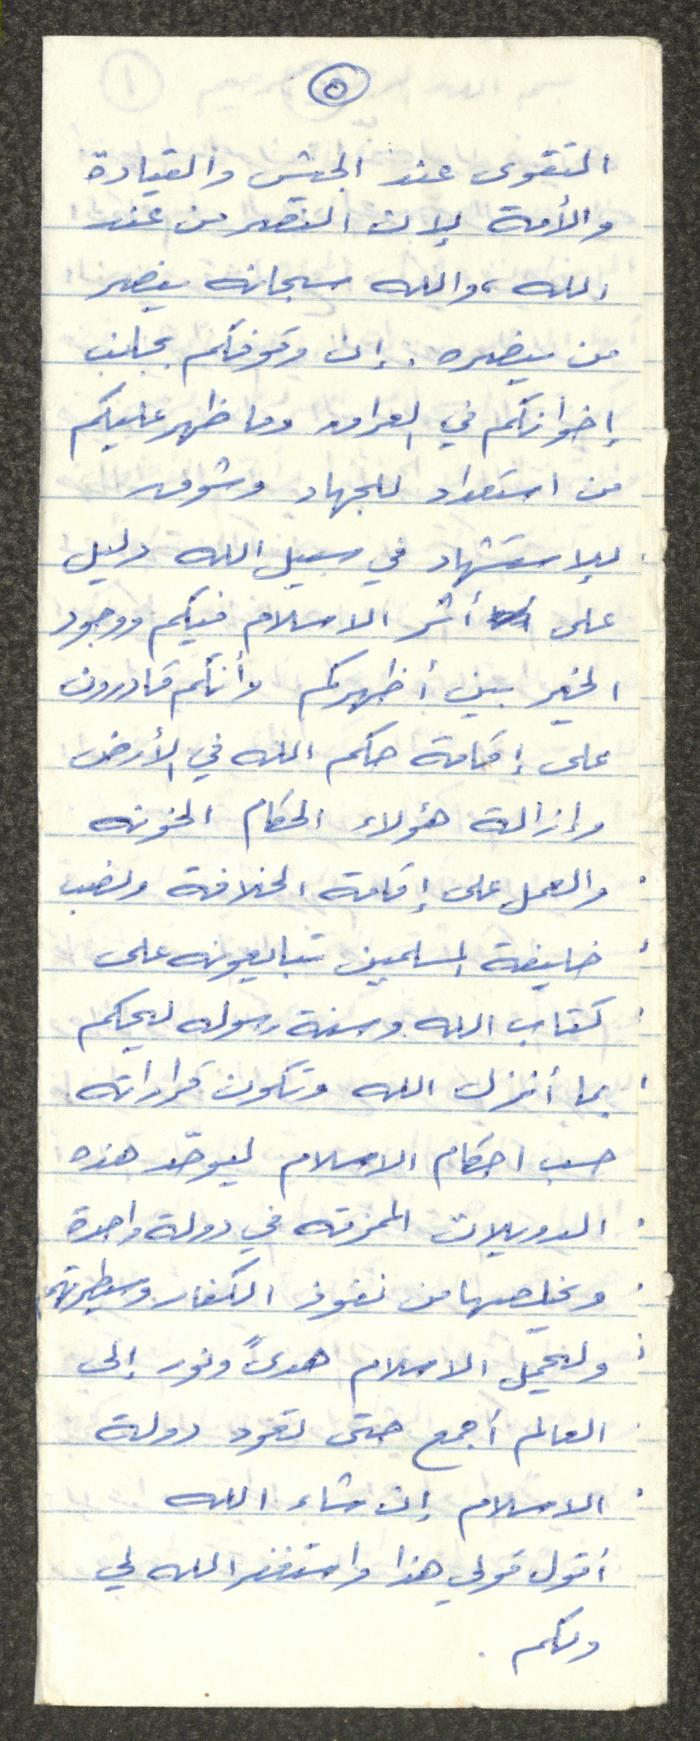 ٥
التقوى عند الجيش والقيادة
والأمة لإن النصر من عند
الله، والله سبحانه ينصر
من ينصره. إن وقوفكم بجانب
إخوانكم في العراق وما ظهر عليكم
من استعداد للجهاد وشوق
للإستشهاد في سبيل الله دليل
على أثر الاسلام فيكم ووجود
الخير بين أظهركم وأنكم قادرون
على إقامة حكم الله في الأرض
وإزالة هؤلاء الحكام الخونه
والعمل على إقامة الخلافة ونصب
خليفة المسلمين تبايعونه على
كتاب الله وسنة رسوله ليحكم
بما أنزل الله وتكون قراراته
حسب احكام الاسلام ليوحّد هذه
الدويلات الممزقه في دولة واحدة
ويخلصها من نفوذ الكفار وسيطرتهم
وليحمل الاسلام هدىً ونور إلى
العالم أجمع حتى تعود دولة
الاسلام إن شاء الله
أقول قولي هذا واستغفر الله لي
ولكم .